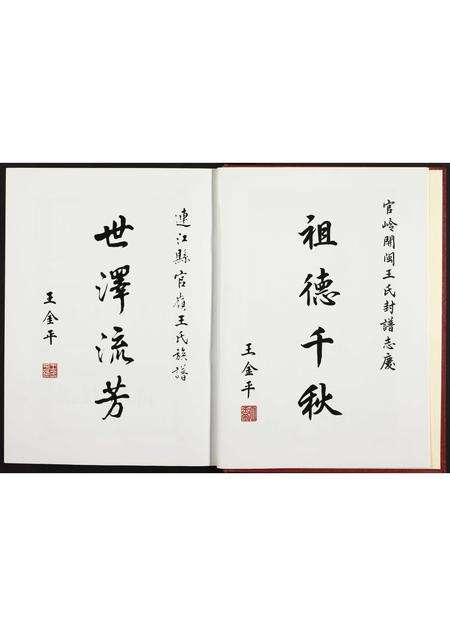 官岭開閩王氏封譜志慶
祖德千秋
王金平
連江縣官嶺王氏族譜
世澤流芳
王金平